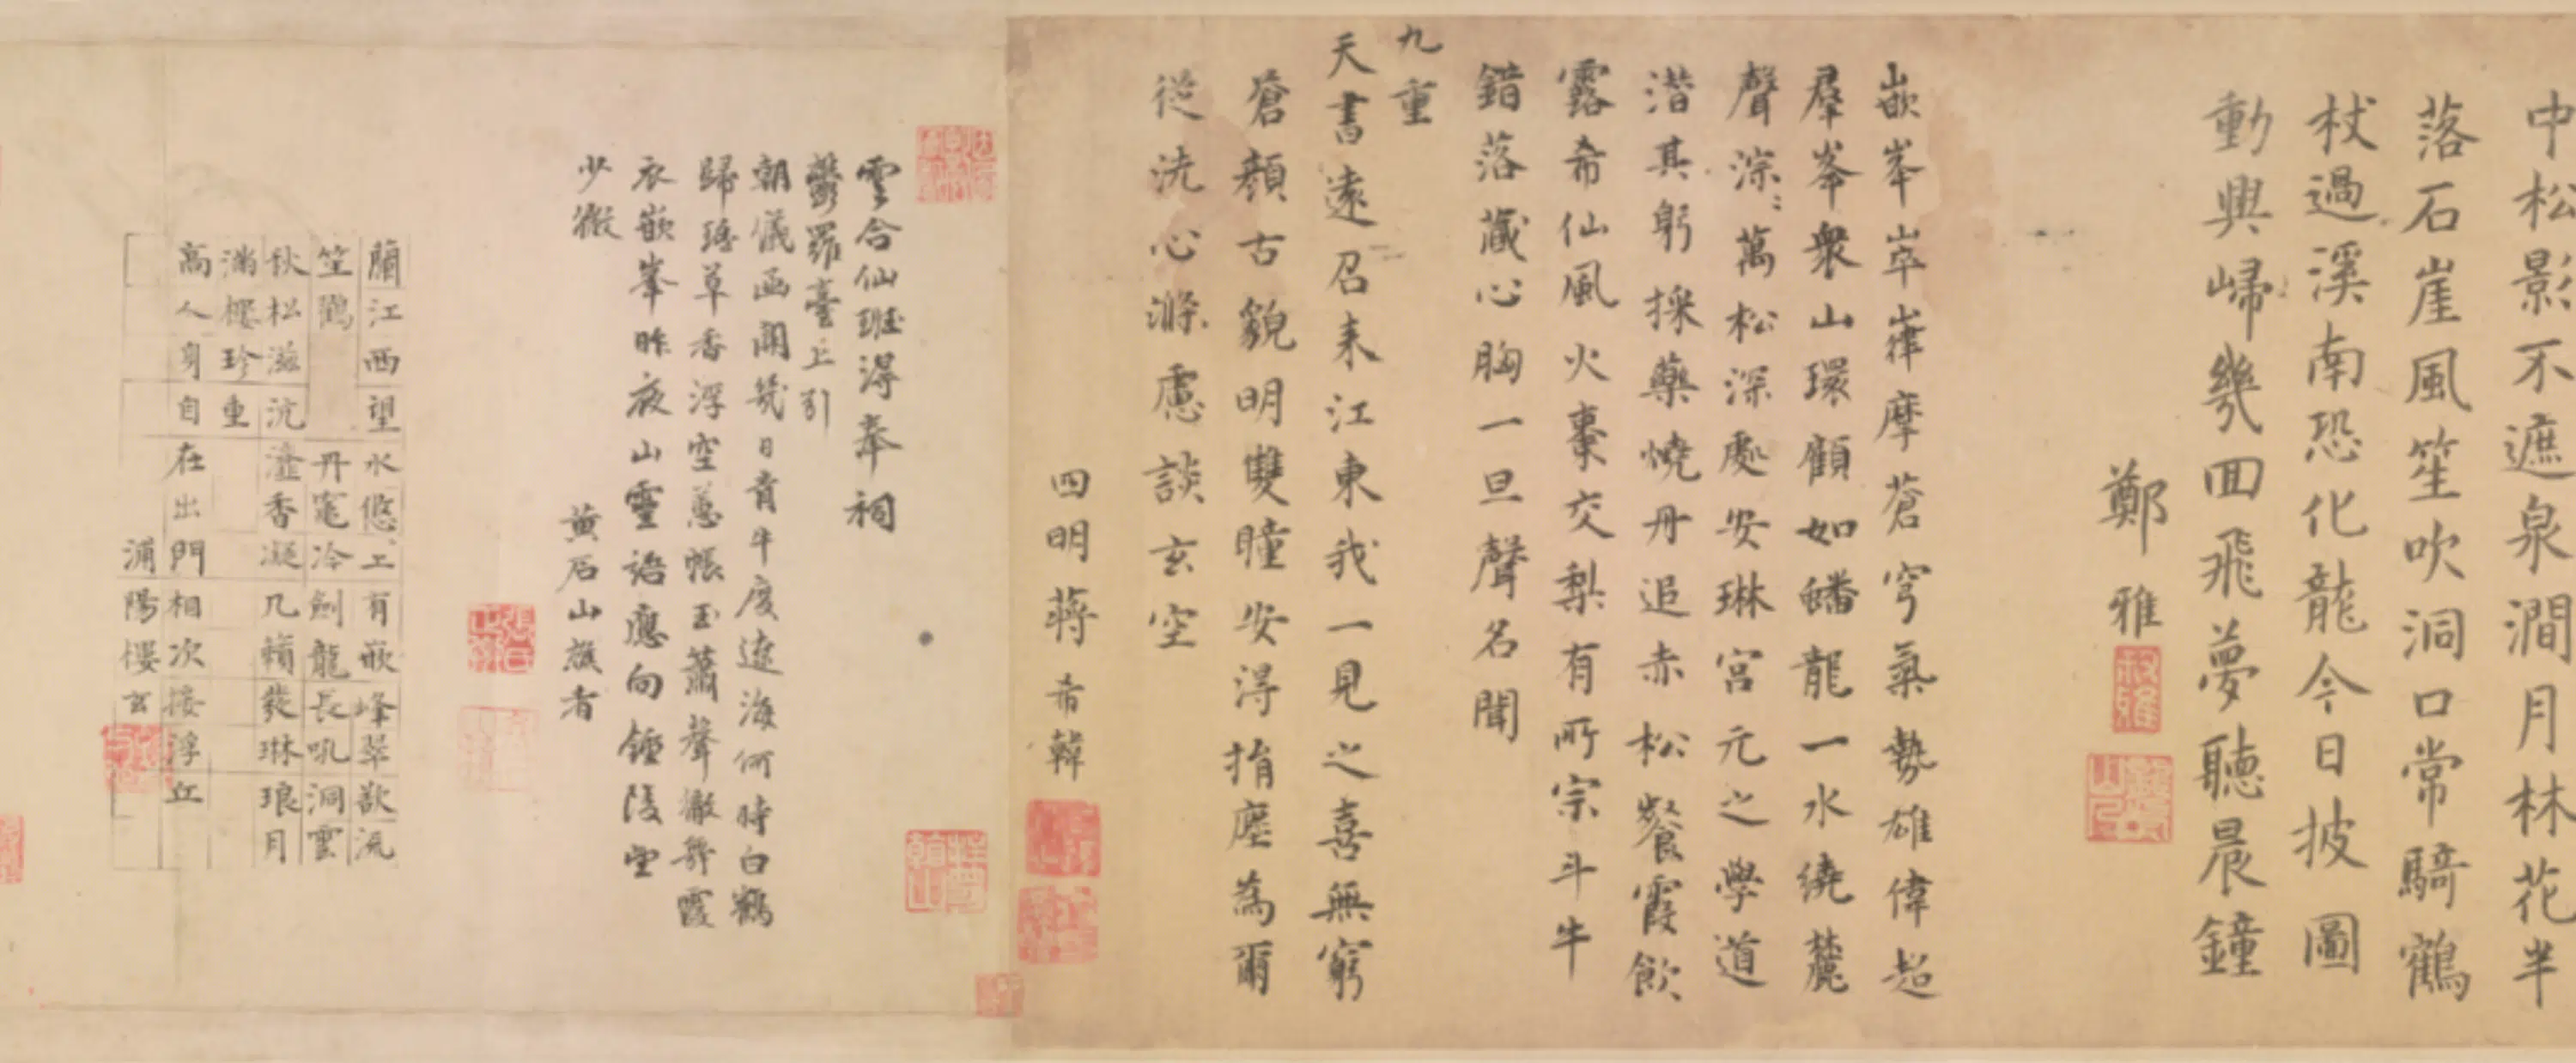 中松影不遮泉澗月林花半
落石崖風笙吹洞口常騎鶴
杖過溪南恐化龍今日披圖
動興歸幾回飛夢聽晨鐘
鄭雅
嶔峯崒嵂摩蒼穹氣勢雄偉超
羣峯衆山環顧如蟠龍一水繞麓
聲淙〻萬松深處安琳宮元之學道
潛其躬採藥燒丹追赤松餐霞飲
露希仙風火棗交梨有所宗斗牛
錯落藏心胸一旦聲名聞
九重
天書遠召來江東我一見之喜無窮
蒼顏古貌明雙瞳安得捐塵為爾
從洗心滌慮談玄空
四明蔣希韓
雲合仙班淂奉祠
鬱羅臺上引
朝儀函關幾日青牛度遼海何時白鶴
歸瑤草香浮空蕙帳玉蕭聲徹舞霞
衣嶔峯昨夜山靈語應向鍾陵望
少微
黄石山樵者
蘭江西望水悠〻上有嶔峰翠欲流
笙鶴 丹竈冷劍龍長吼洞雲
秋松滋沆瀣香凝几籟發琳琅月
滿樓珍重
高人身自在出門相次接浮丘
浦陽樓玄